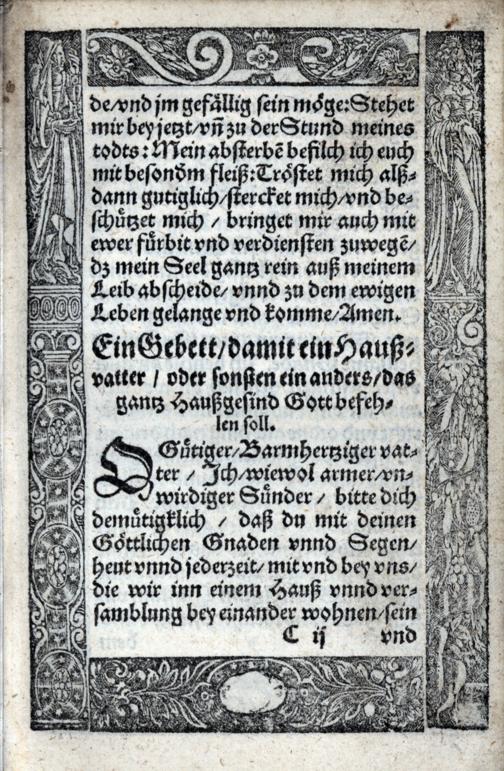 de/vnd jm gefällig sein möge: Stehet
mir bey jetzt/vñ zu der Stund meines
todts: Mein absterbẽ befilch ich euch
mit besondm fleiß: Tröstet mich alß-
dann gutiglich/stercket mich/vnd be-
schützet mich / bringet mir auch mit
ewer fürbit vnd verdiensten zuwegẽ/
dz mein Seel gantz rein auß meinem
Leib abscheide/ vnnd zu dem ewigen
Leben gelange vnd komme/Amen.
Ein Gebett/damit ein Hauß-
vatter / oder sonsten ein anders/das
gantz Haußgesind Gott befeh-
len soll.
O Gütiger/Barmhertziger vat-
ter / Ich/wiewol armer/vn-
wirdiger Sünder / bitte dich
demütigklich / daß du mit deinen
Göttlichen Gnaden vnnd Segen/
heut vnnd jederzeit/mit vnd bey vns/
die wir inn einem Hauß vnnd ver-
samblung bey einander wohnen/sein
C ij vnd